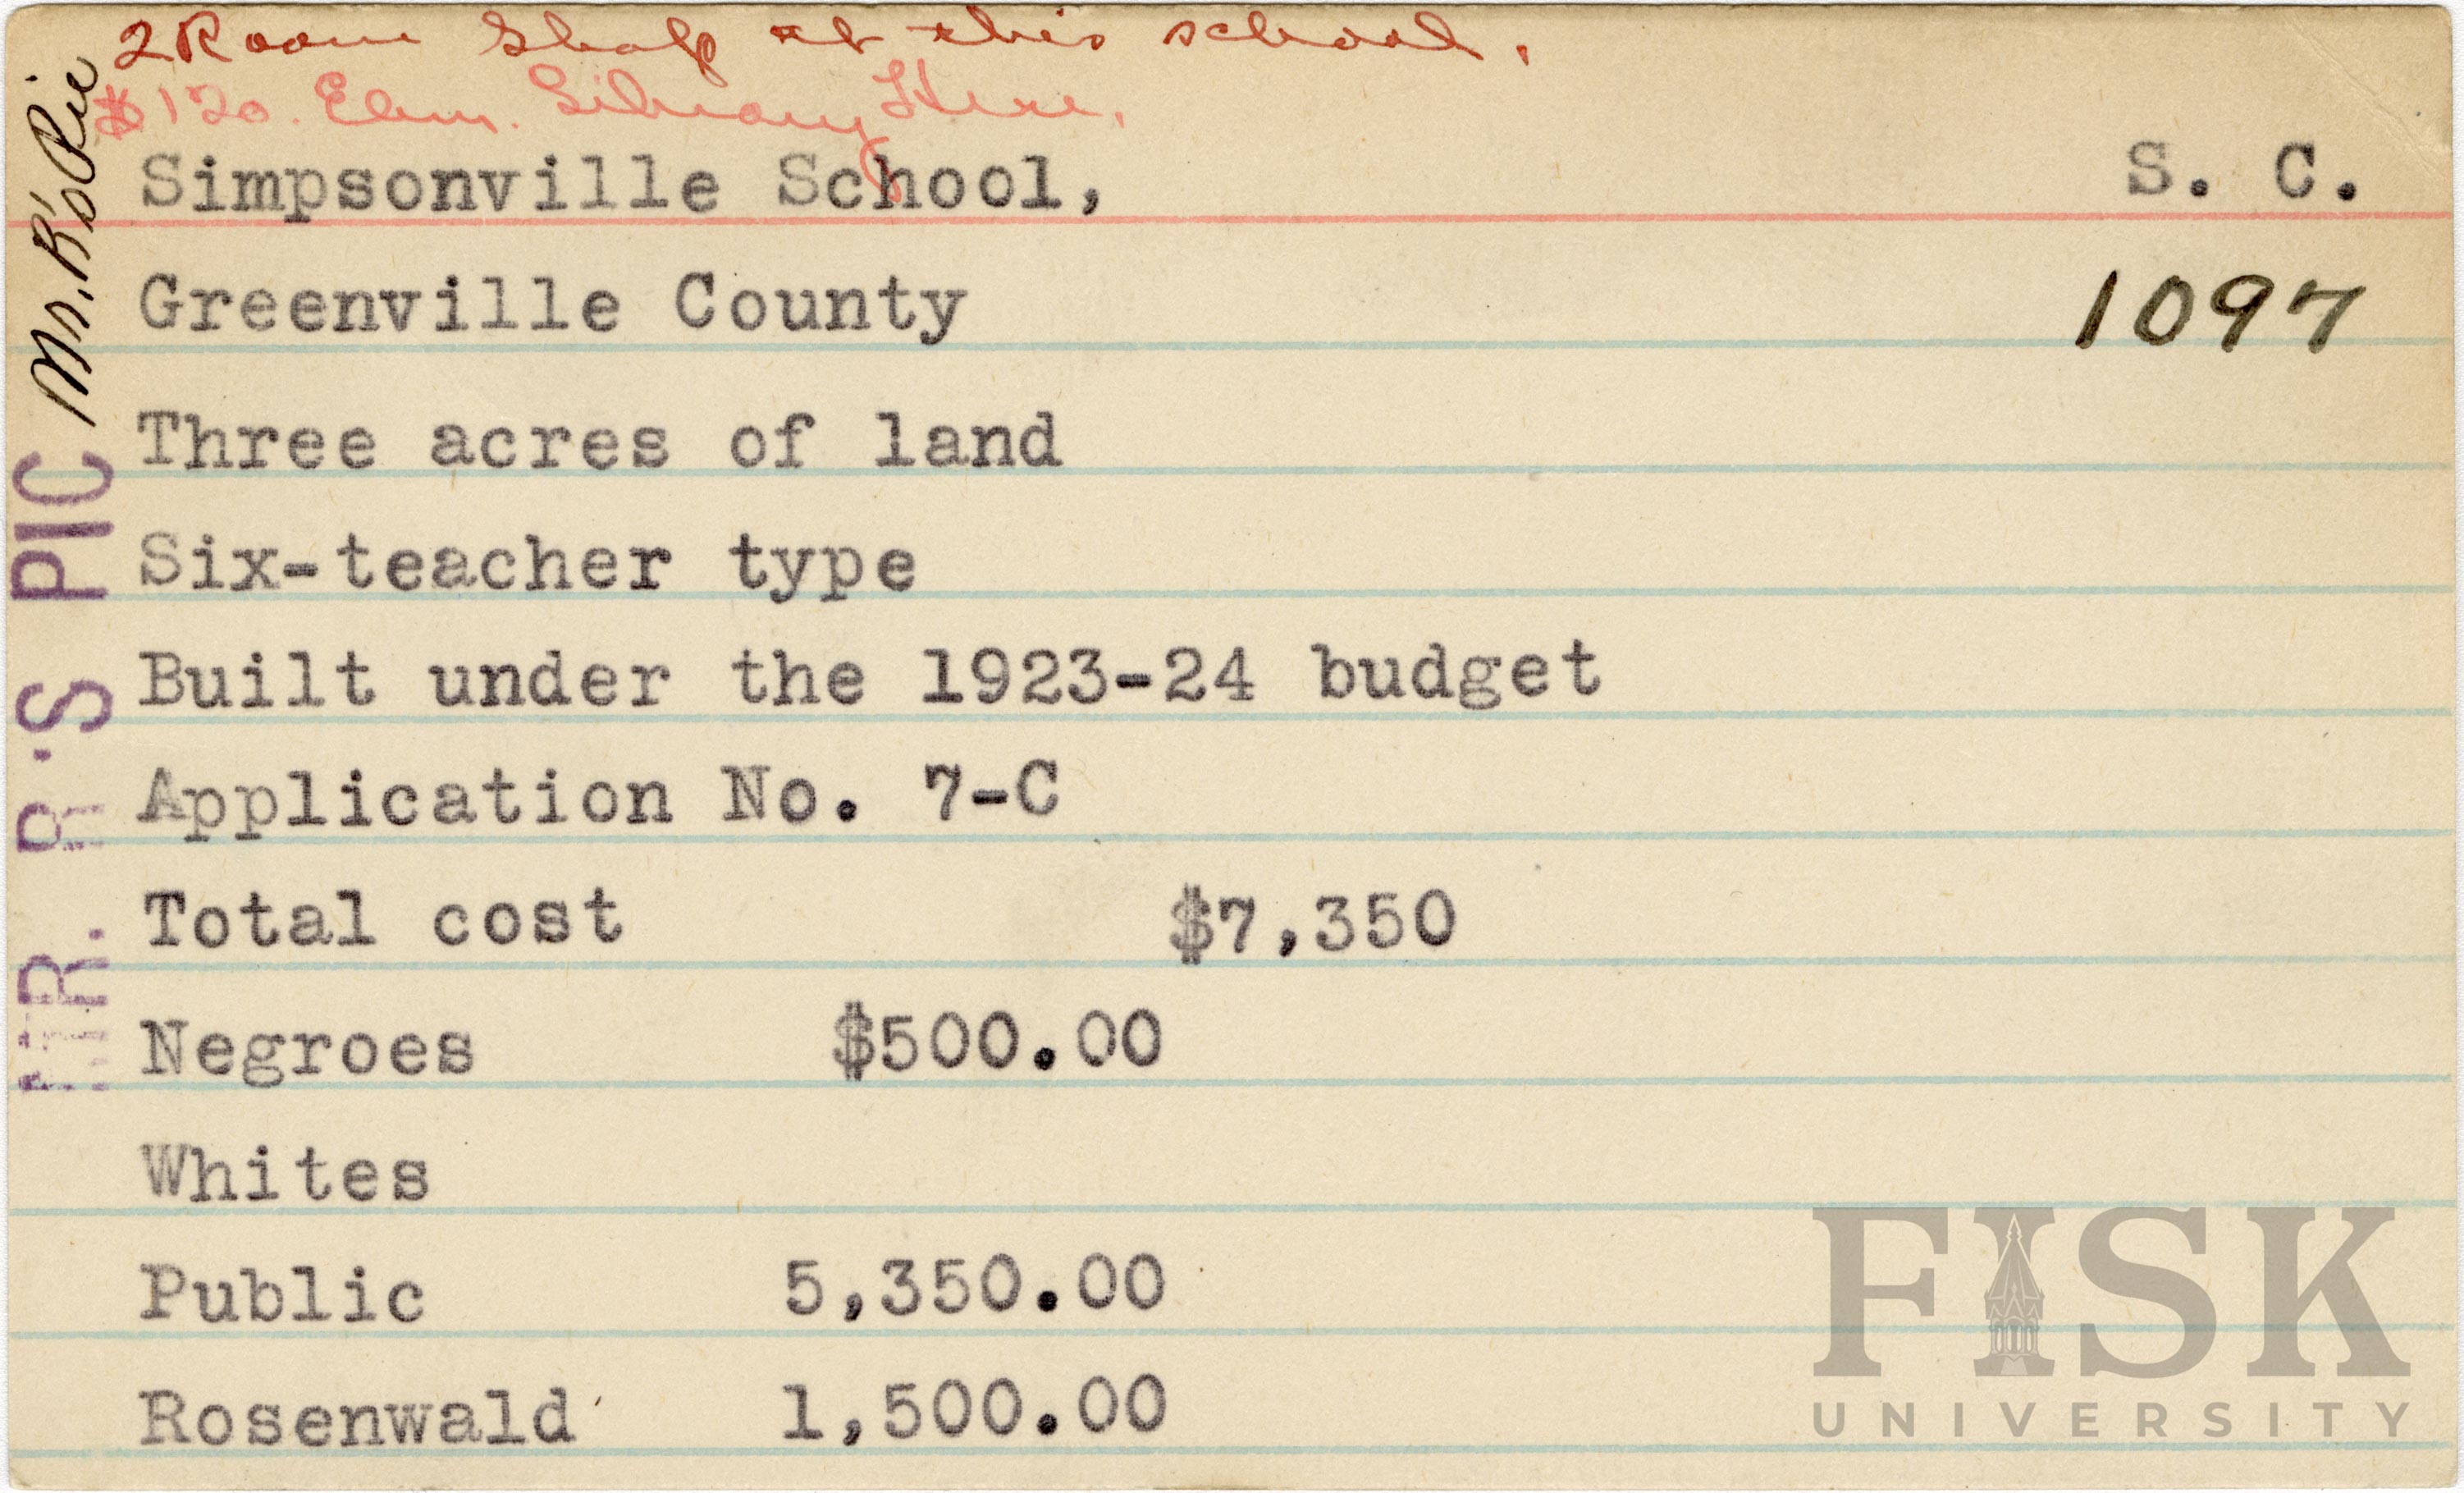 2 Room Shop at this school.
$120. Elem. Library Here.
Simpsonville School, S. C.
Greenville County 1097
Three acres of land
Six-teacher type
Built under the 1923-24 budget
Application No. 7-C
Total cost $7,350
Negroes $500.00
Whites
Public 5,350.00
Rosenwald 1,500.00
MR. R'S PIC
Mr. R's Pic
FISK
UNIVERSITY